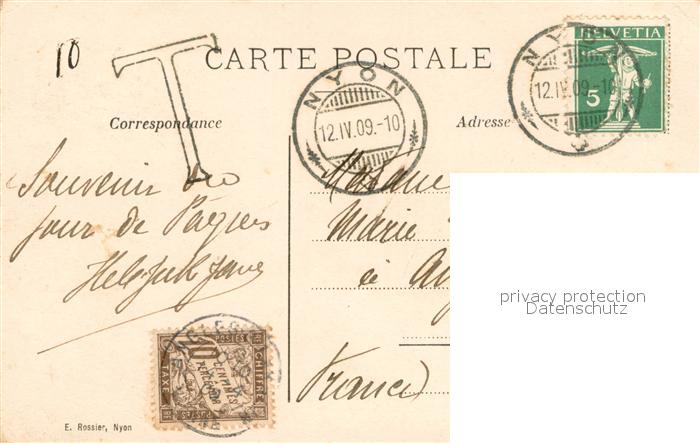 10
T
CARTE POSTALE
NYON
12.IV.09.-10
NYON
12.IV.09.-10
HELVETIA
5
Correspondance
Adresse
Souvenir du
jour de Pâques
Madame
Marie
à
France
privacy protection
Datenschutz
POSTES
CHIFFRE
10
CENTIMES
À PERCEVOIR
TAXE
E. Rossier, Nyon